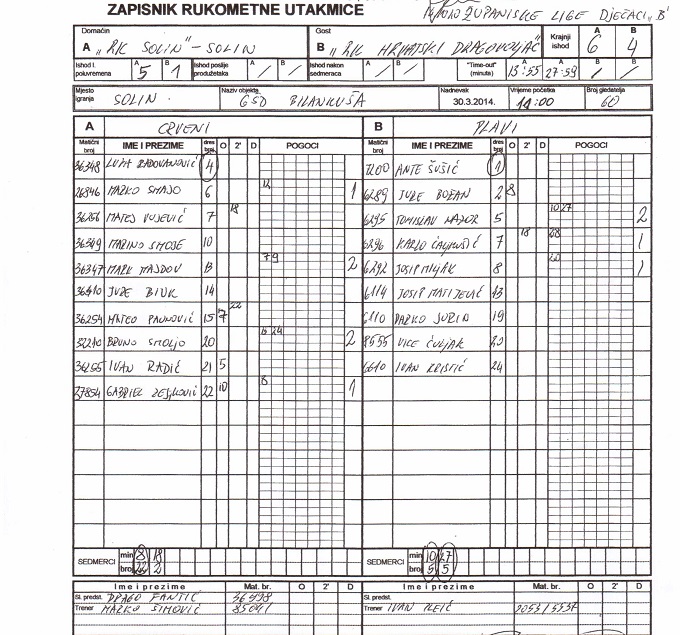 ZAPISNIK RUKOMETNE UTAKMICE
ŽUPANIJSKE LIGE DJEČACI „B"
Domaćin Gost Krajnji ishod A B
A „RK SOLIN" – SOLIN B „RK HRVATSKI DRAGOVOLJAC" 6 4
Ishod I. poluvremena A 5 B 1 Ishod poslije produžetaka / / Ishod nakon sedmeraca / / "Time-out" (minuta) A 15:55 27:59 B / /
Mjesto igranja SOLIN Naziv objekta GSD BILANKUŠA Nadnevak 30.3.2014. Vrijeme početka 11:00 Broj gledatelja 60
A CRVENI B PLAVI
Matični broj IME I PREZIME dres broj O 2' D POGOCI Matični broj IME I PREZIME dres broj O 2' D POGOCI
36348 LUKA RADOVANOVIĆ 4 ANTE ŠUŠIĆ 1
26846 MARKO SMAJO 6 12 1 6289 JURE BOŽAN 2 8
MATEJ VUJEVIĆ 7 18 6295 TOMISLAV 5 10 27 2
36349 MARINO SMOJE 10 6296 KARLO 7 18 1
36347 MARK MAJDOV 7 9 2 6292 JOSIP MILJAK 8 20 1
JURE BIUK 14 6114 JOSIP MATIJEVIĆ 13
36254 MATEO PAUNOVIĆ 15 7 22 6110 DARKO JURIN 19
32210 BRUNO SMOLJO 20 24 2 8555 VICE ČULJAK
36255 IVAN RADIĆ 21 5 6610 IVAN KRISTIĆ 24
27854 GABRIEL 22 10 8 1
SEDMERCI min 8 18 SEDMERCI min 10 27
broj 22 2 broj 5 5
Ime i prezime Mat. br. O 2' D Ime i prezime Mat. br. O 2' D
Sl. predst. DRAGO FANTIĆ 36398 Sl. predst.
Trener MARKO SIMOVIĆ 85041 Trener IVAN